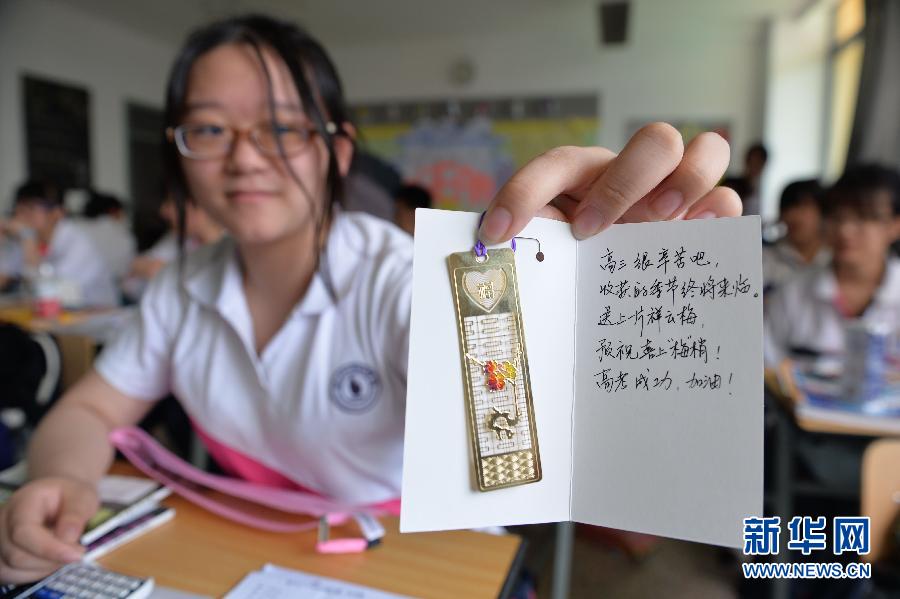 高三很辛苦吧，
收获的季节终将来临。
送上一片祥云梅，
预祝喜上“梅”梢！
高考成功，加油！
新华网
WWW.NEWS.CN